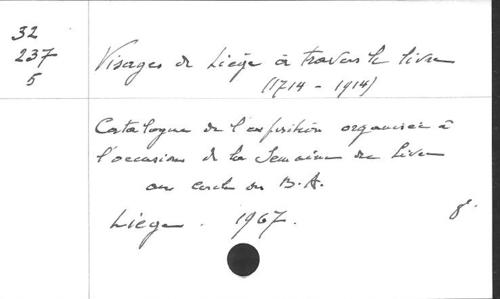 32
237
5
Visages de Liège à travers le livre
(1714 - 1914)
Catalogue de l'exposition organisée à
l'occasion de la Semaine du Livre
au cercle des B.A.
Liège. 1967.
8°.